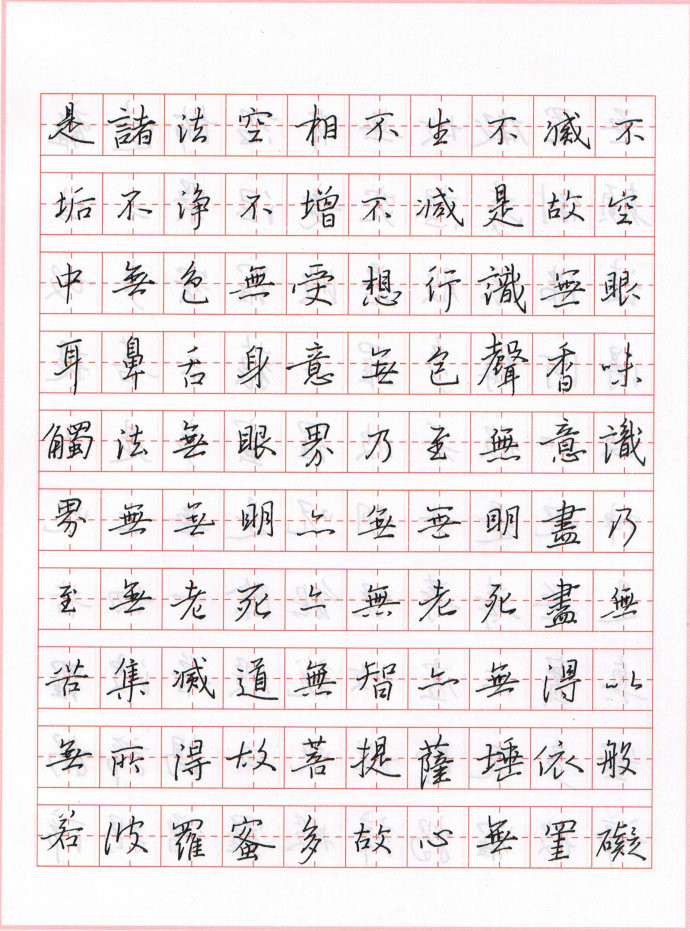 是諸法空相不生不滅不
垢不淨不增不減是故空
中無色無受想行識無眼
耳鼻舌身意無色聲香味
觸法無眼界乃至無意識
界無無明亦無無明盡乃
至無老死亦無老死盡無
苦集滅道無智亦無得以
無所得故菩提薩埵依般
若波羅蜜多故心無罣礙